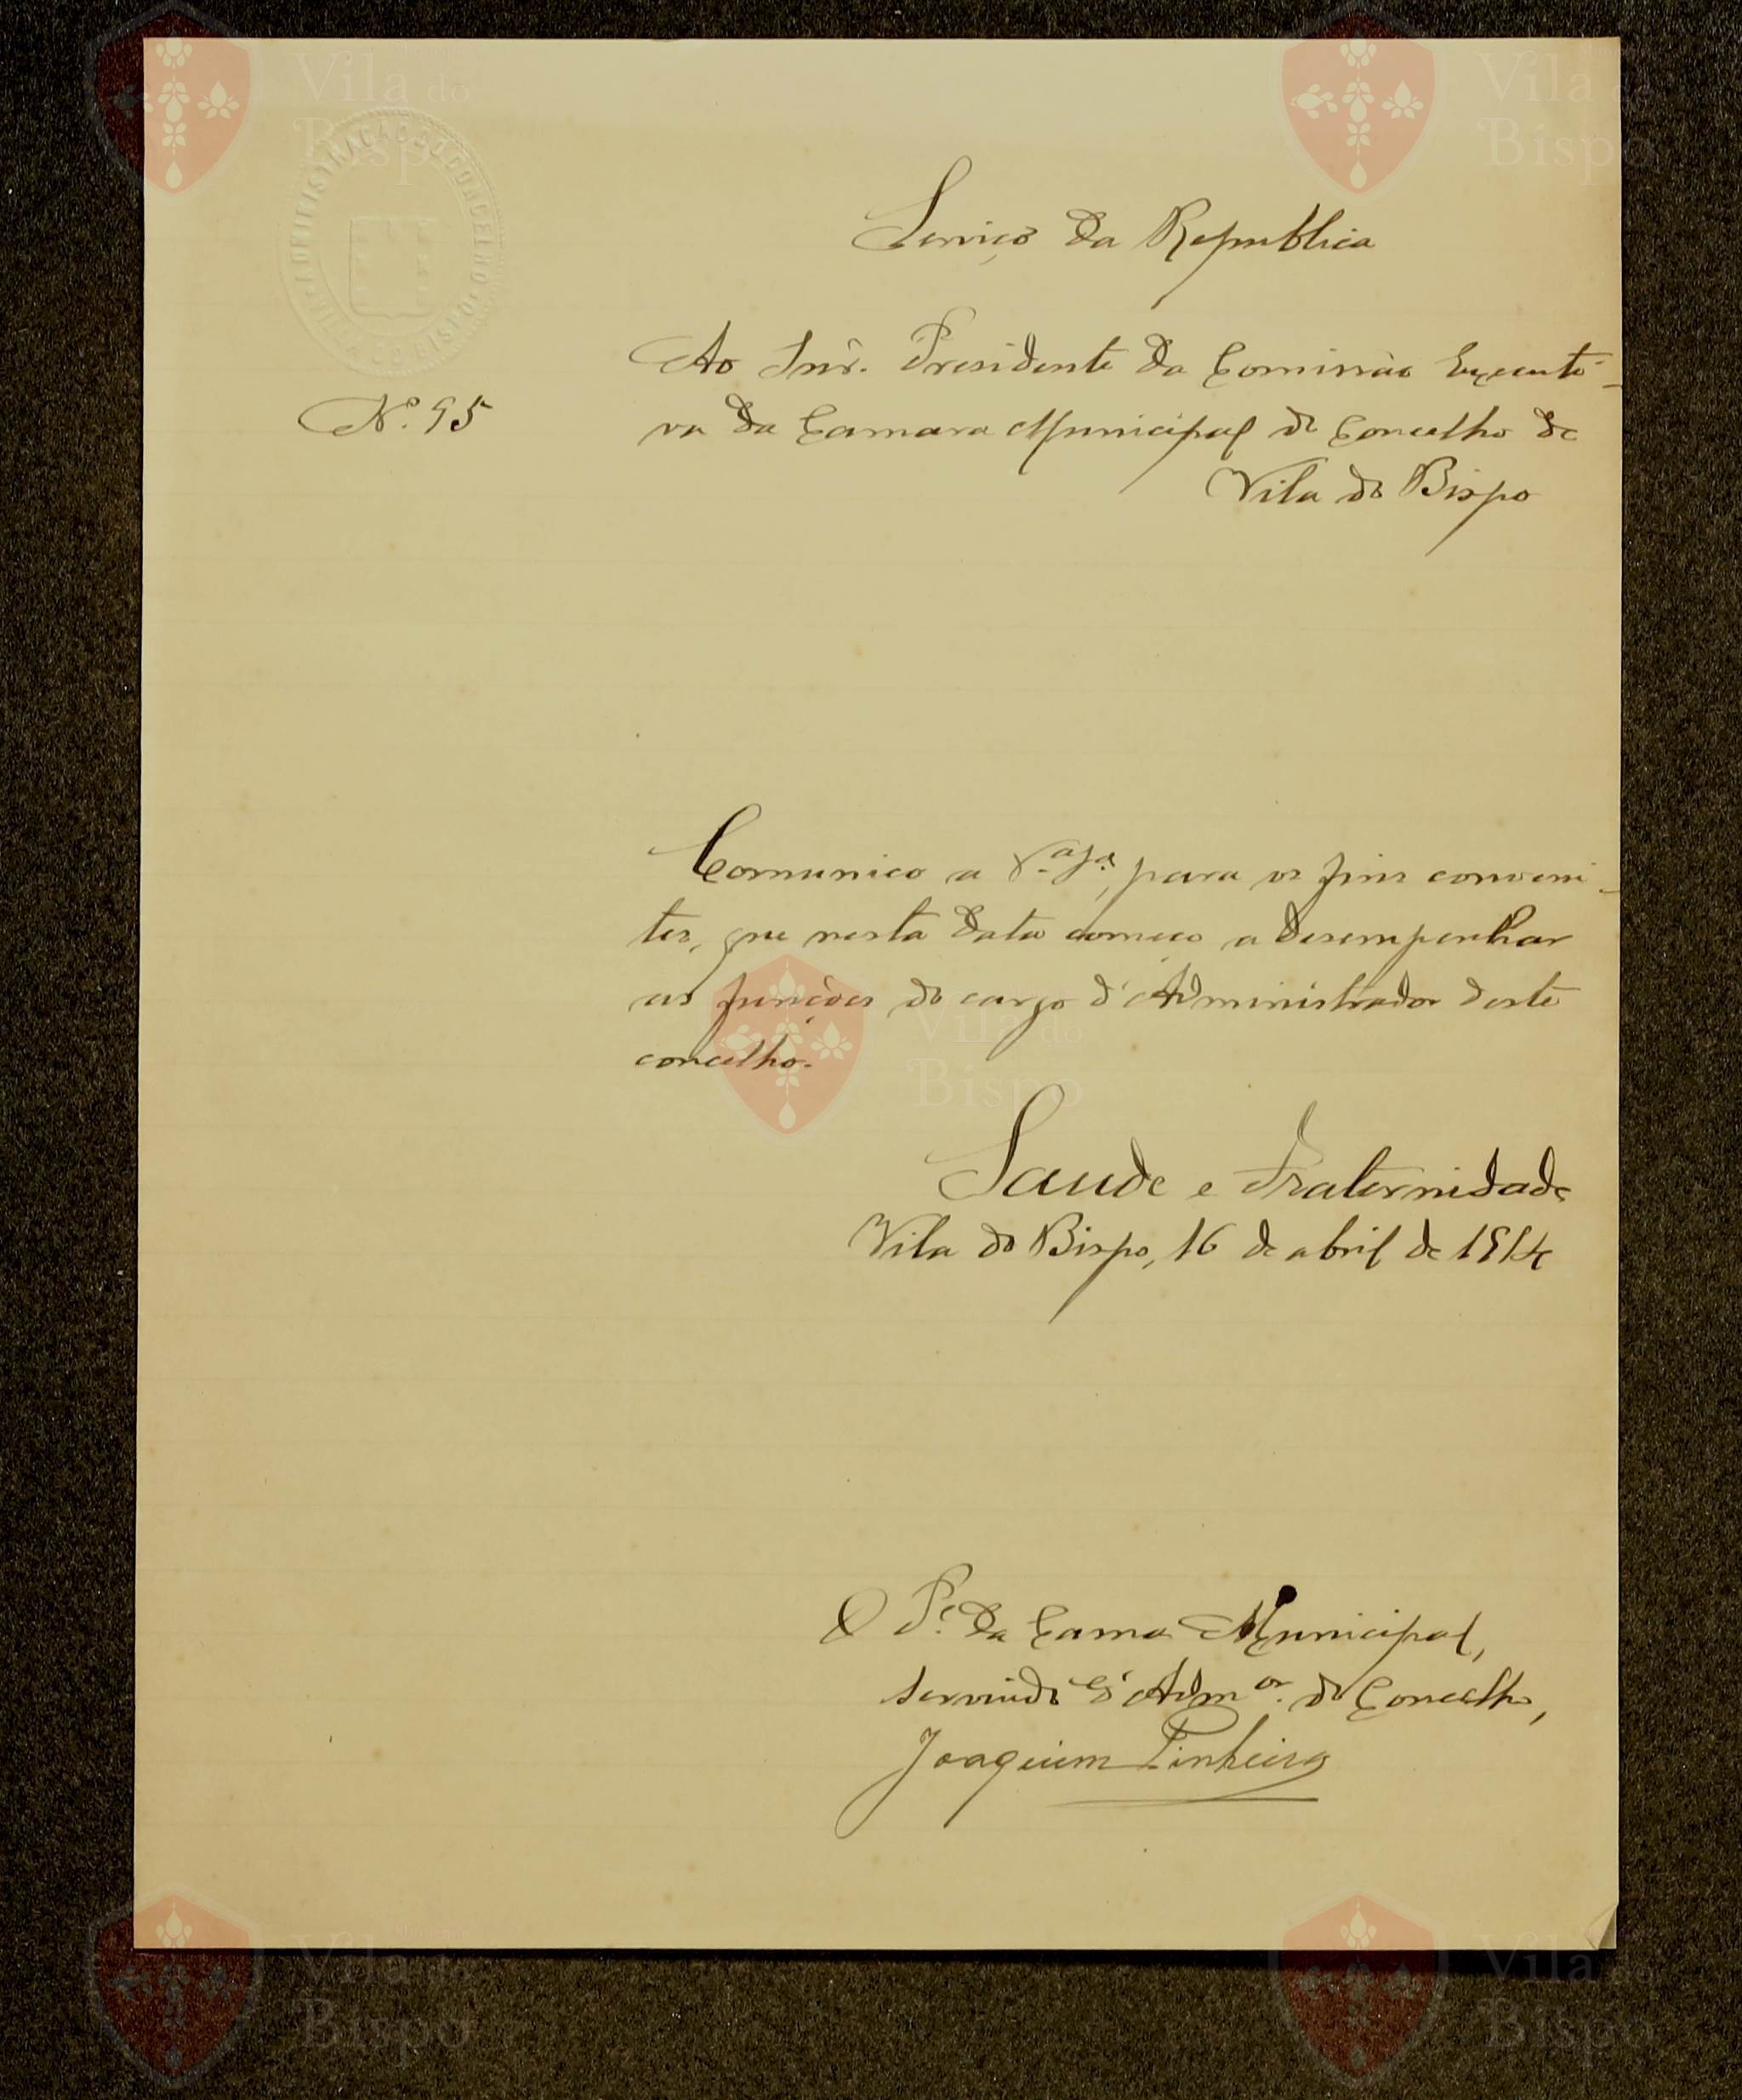 Vila do
Bispo
Vila do
Bispo
ADMINISTRAÇÃO DO CONCELHO
VILA DO BISPO
Serviço da Republica
Ao Snr. Presidente da Comissão Executi-
va da Camara Municipal do Concelho de
Vila do Bispo
Nº. 95
Comunico a V.ª , para os fins conveni-
tes, que nesta data começo a desempenhar
as funções do cargo d'Administrador deste
concelho.
Vila do
Bispo
Saude e Fraternidade
Vila do Bispo, 16 de abril de 1914
O P.e da Cama Municipal,
servindo d'Adm.or do Concelho,
Joaquim Pinheiro
Vila do
Bispo
Vila do
Bispo